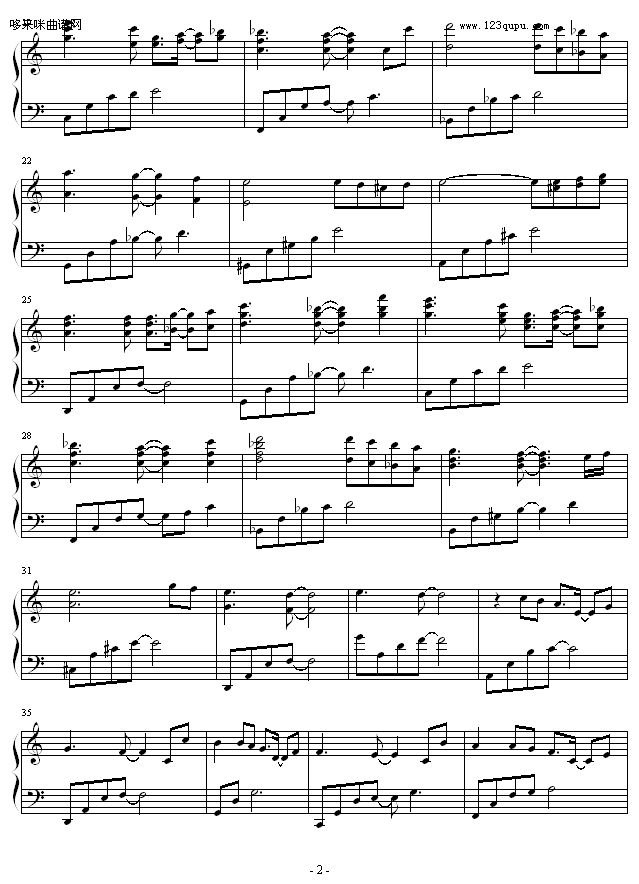 哆来咪曲谱网
www.123qupu.com
22
25
28
31
35
- 2 -